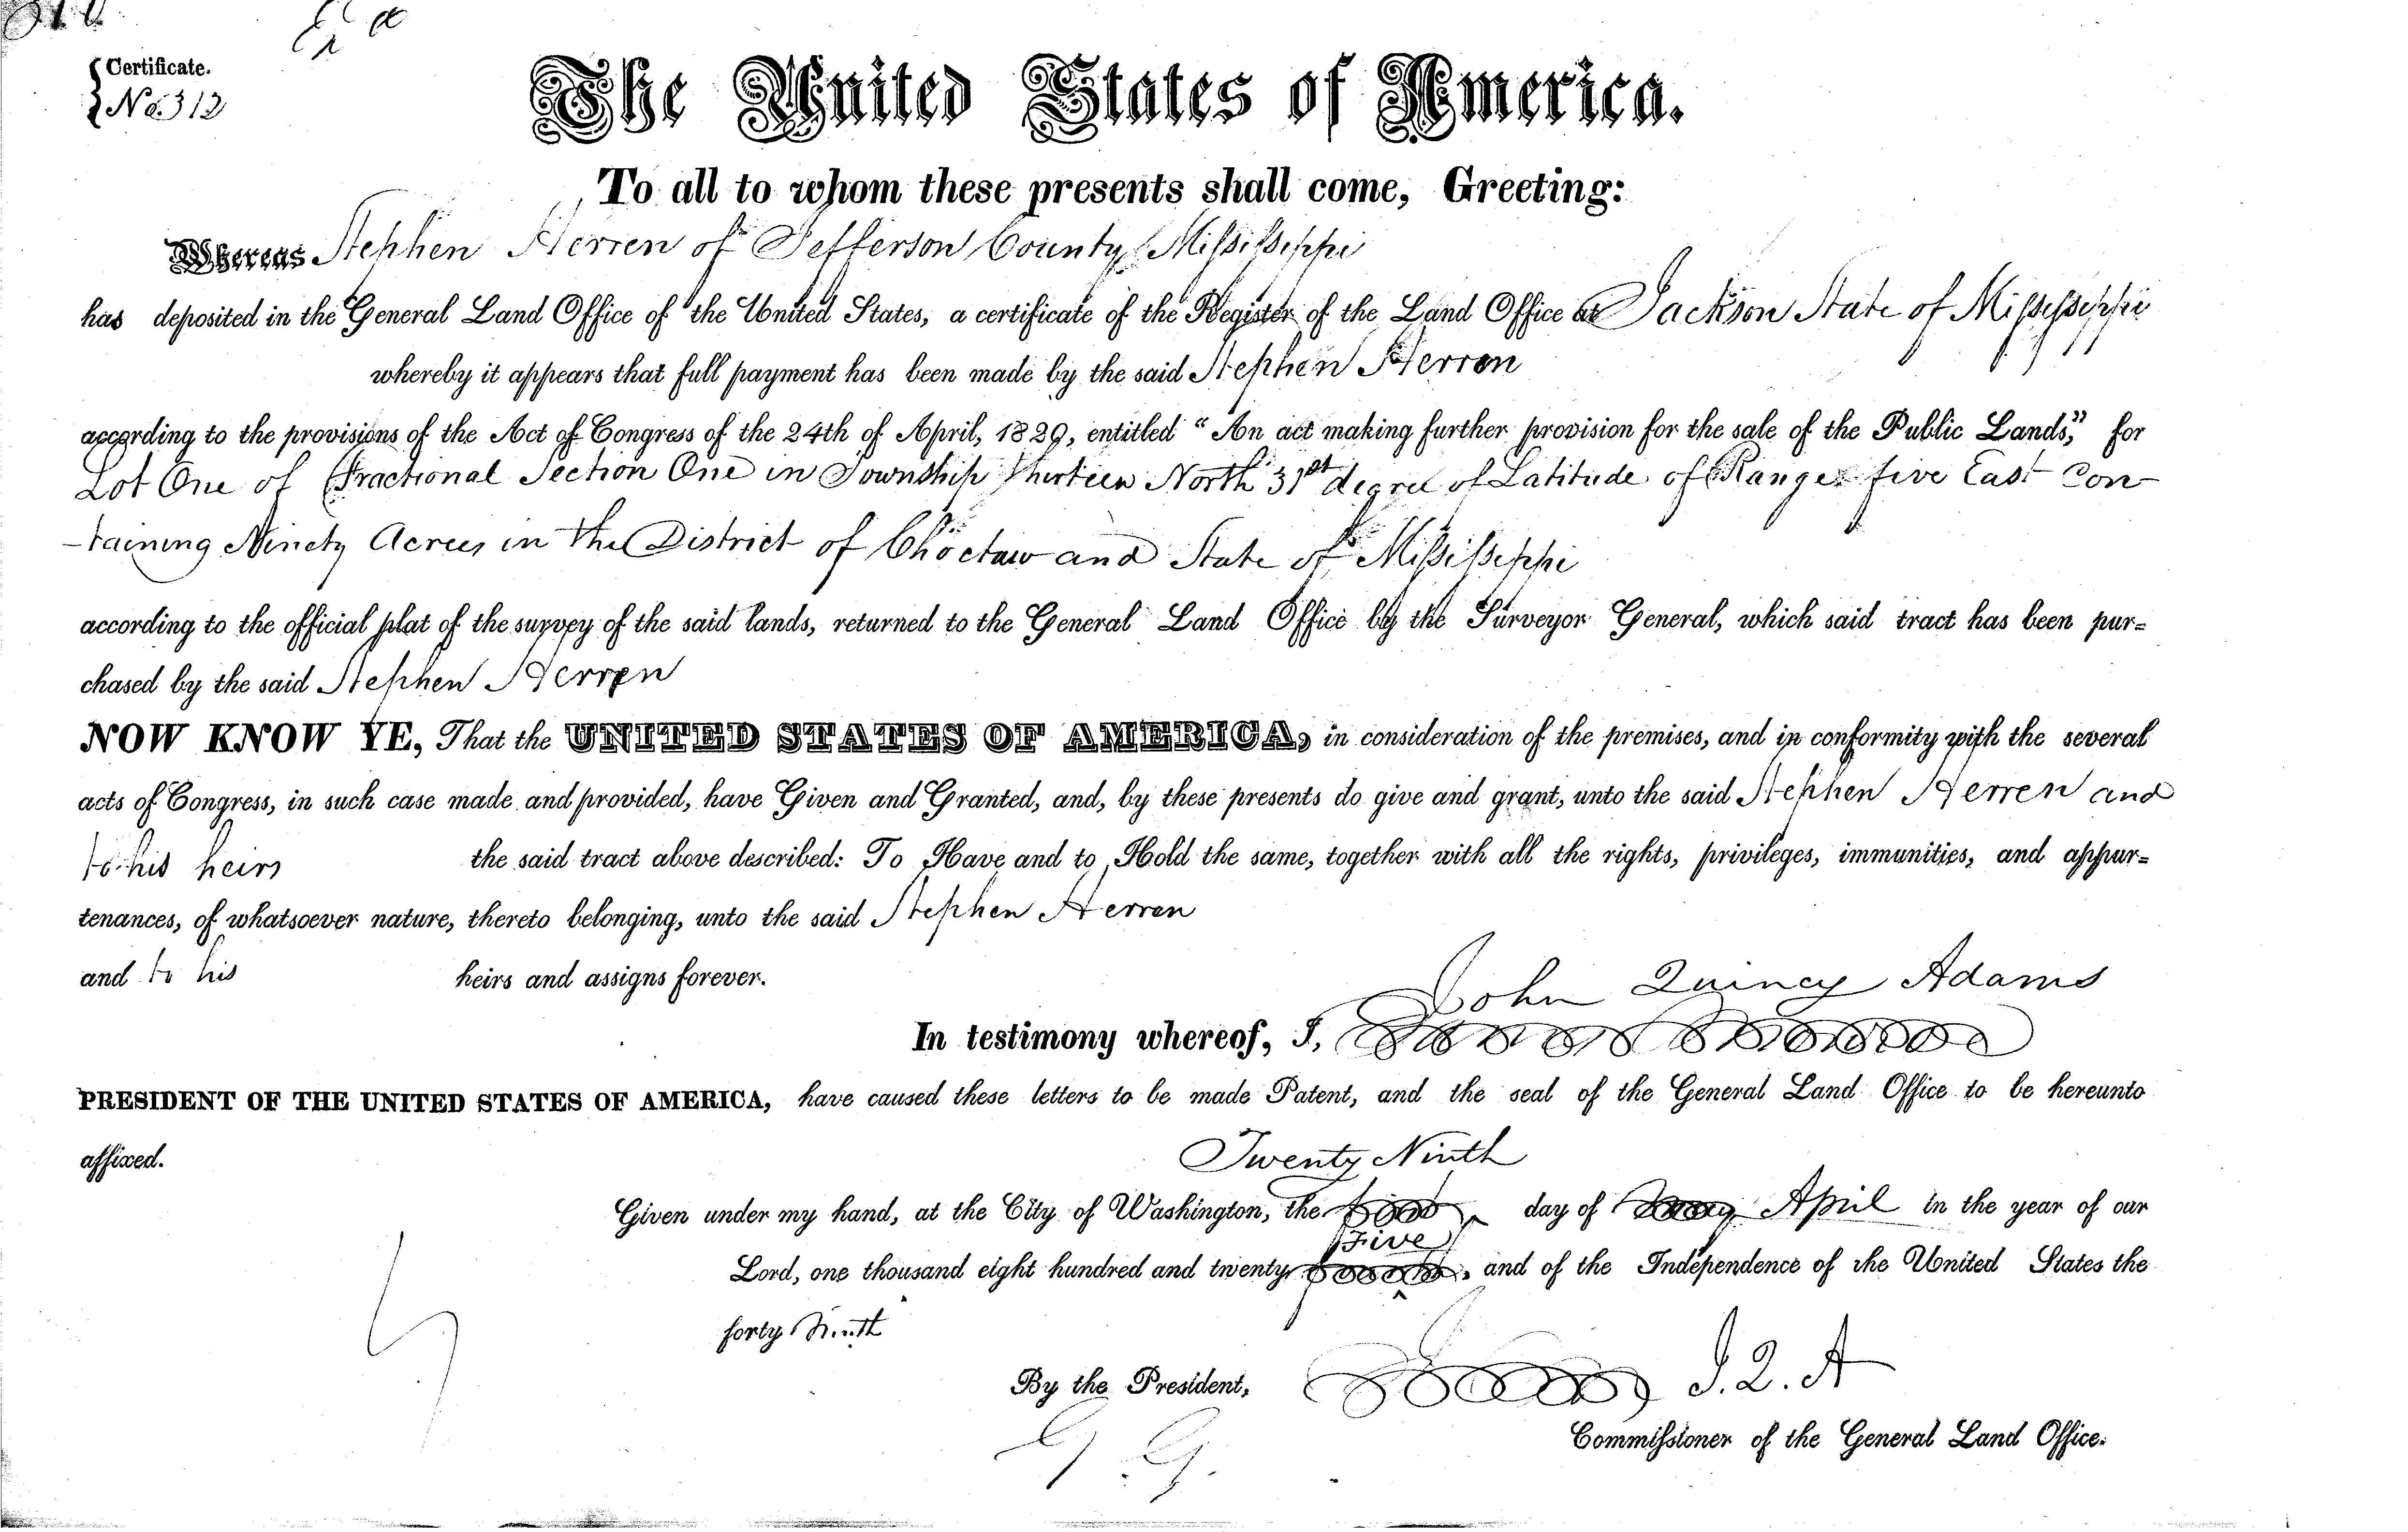 Certificate.
No. 312
The United States of America.
To all to whom these presents shall come, Greeting:
Whereas Stephen Herren of Jefferson County Mississippi
has deposited in the General Land Office of the United States, a certificate of the Register of the Land Office at Jackson State of Mississippi
whereby it appears that full payment has been made by the said Stephen Herren
according to the provisions of the Act of Congress of the 24th of April, 1829, entitled "An act making further provision for the sale of the Public Lands," for
Lot One of Fractional Section One in Township Thirteen North 31st degree of Latitude of Range five East Con-
-taining Ninety Acres in the District of Choctaw and State of Mississippi
according to the official plat of the survey of the said lands, returned to the General Land Office by the Surveyor General, which said tract has been pur=
chased by the said Stephen Herren
NOW KNOW YE, That the UNITED STATES OF AMERICA, in consideration of the premises, and in conformity with the several
acts of Congress, in such case made and provided, have Given and Granted, and, by these presents do give and grant, unto the said Stephen Herren and
to his heirs the said tract above described: To Have and to Hold the same, together with all the rights, privileges, immunities, and appur=
tenances, of whatsoever nature, thereto belonging, unto the said Stephen Herren
and to his heirs and assigns forever.
John Quincy Adams
In testimony whereof, I,
PRESIDENT OF THE UNITED STATES OF AMERICA, have caused these letters to be made Patent, and the seal of the General Land Office to be hereunto
affixed.
Twenty Ninth
Given under my hand, at the City of Washington, the day of April in the year of our
Five
Lord, one thousand eight hundred and twenty , and of the Independence of the United States the
forty Ninth
By the President, J. Q. A
G. G.
Commissioner of the General Land Office.